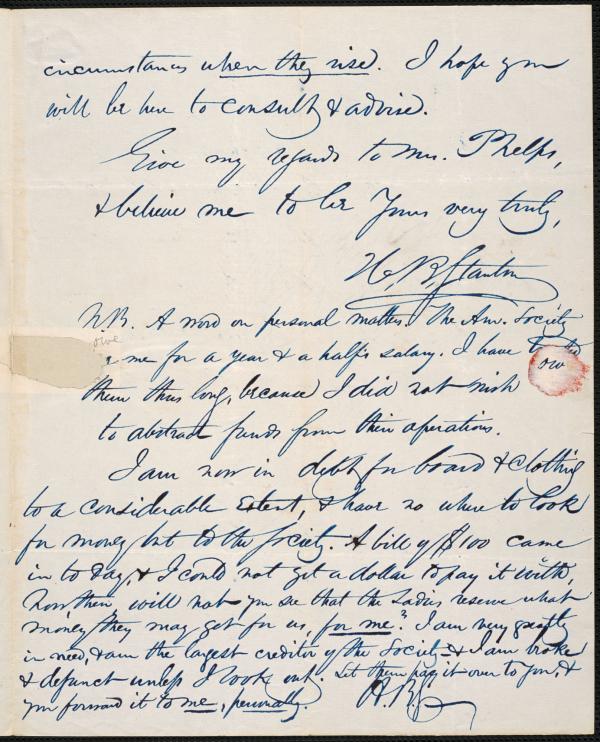 circumstances when they rise. I hope you
will be here to consult & advise.
Give my regards to Mrs. Phelps,
& believe me to be Yours very truly,
H. B. Stanton
N.B. A word on personal matters. The Am. Society
owe
me for a year & a half's salary. I have
owe
them thus long, because I did not wish
to abstract funds from their operations.
I am now in debt for board & clothing
to a considerable extent, & have no where to look
for money but to the Society. A bill of $100 came
in to day, & I could not get a dollar to pay it with.
Now then, will not you see that the Ladies reserve what
money they may get for us, for me? I am very greatly
in need, & am the largest creditor of the Society & I am broke
& defunct unless I look out. Let them pay it over to you, &
you forward it to me, personally. H.B.S.